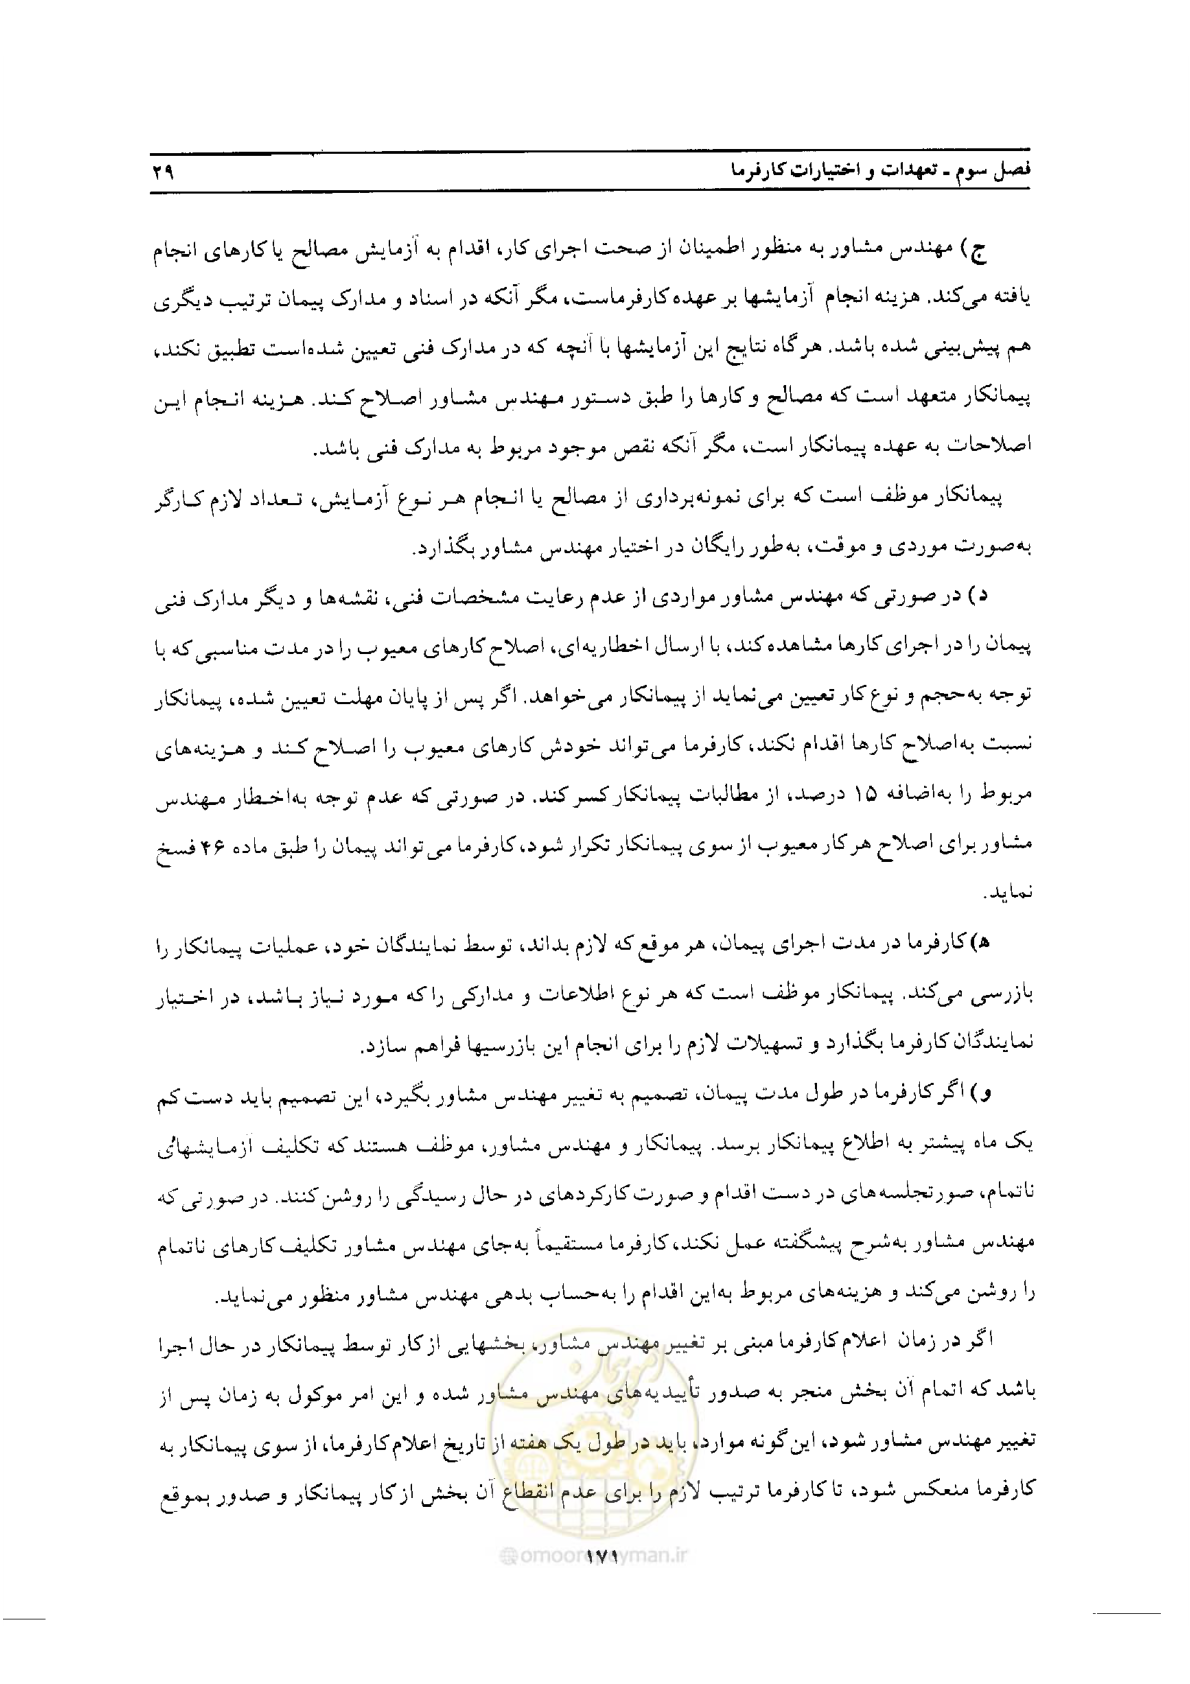 فصل سوم ـ تعهدات و اختیارات کارفرما ۲۹
ج) مهندس مشاور به منظور اطمینان از صحت اجرای کار، اقدام به آزمایش مصالح یا کارهای انجام
یافته می‌کند. هزینه انجام آزمایشها بر عهده کارفرماست، مگر آنکه در اسناد و مدارک پیمان ترتیب دیگری
هم پیش‌بینی شده باشد. هرگاه نتایج این آزمایشها با آنچه که در مدارک فنی تعیین شده‌است تطبیق نکند،
پیمانکار متعهد است که مصالح و کارها را طبق دستور مهندس مشاور اصلاح کند. هزینه انجام این
اصلاحات به عهده پیمانکار است، مگر آنکه نقص موجود مربوط به مدارک فنی باشد.
پیمانکار موظف است که برای نمونه‌برداری از مصالح یا انجام هر نوع آزمایش، تعداد لازم کارگر
به‌صورت موردی و موقت، به‌طور رایگان در اختیار مهندس مشاور بگذارد.
د) در صورتی که مهندس مشاور مواردی از عدم رعایت مشخصات فنی، نقشه‌ها و دیگر مدارک فنی
پیمان را در اجرای کارها مشاهده کند، با ارسال اخطاریه‌ای، اصلاح کارهای معیوب را در مدت مناسبی که با
توجه به‌حجم و نوع کار تعیین می‌نماید از پیمانکار می‌خواهد. اگر پس از پایان مهلت تعیین شده، پیمانکار
نسبت به‌اصلاح کارها اقدام نکند، کارفرما می‌تواند خودش کارهای معیوب را اصلاح کند و هزینه‌های
مربوط را به‌اضافه ۱۵ درصد، از مطالبات پیمانکار کسر کند. در صورتی که عدم توجه به‌اخطار مهندس
مشاور برای اصلاح هر کار معیوب از سوی پیمانکار تکرار شود، کارفرما می‌تواند پیمان را طبق ماده ۴۶ فسخ
نماید.
ه) کارفرما در مدت اجرای پیمان، هر موقع که لازم بداند، توسط نمایندگان خود، عملیات پیمانکار را
بازرسی می‌کند. پیمانکار موظف است که هر نوع اطلاعات و مدارکی را که مورد نیاز باشد، در اختیار
نمایندگان کارفرما بگذارد و تسهیلات لازم را برای انجام این بازرسیها فراهم سازد.
و) اگر کارفرما در طول مدت پیمان، تصمیم به تغییر مهندس مشاور بگیرد، این تصمیم باید دست کم
یک ماه پیشتر به اطلاع پیمانکار برسد. پیمانکار و مهندس مشاور، موظف هستند که تکلیف آزمایشهای
ناتمام، صورتجلسه‌های در دست اقدام و صورت کارکردهای در حال رسیدگی را روشن کنند. در صورتی که
مهندس مشاور به‌شرح پیشگفته عمل نکند، کارفرما مستقیماً به‌جای مهندس مشاور تکلیف کارهای ناتمام
را روشن می‌کند و هزینه‌های مربوط به‌این اقدام را به‌حساب بدهی مهندس مشاور منظور می‌نماید.
اگر در زمان اعلام کارفرما مبنی بر تغییر مهندس مشاور، بخشهایی از کار توسط پیمانکار در حال اجرا
باشد که اتمام آن بخش منجر به صدور تأییدیه‌های مهندس مشاور شده و این امر موکول به زمان پس از
تغییر مهندس مشاور شود، این‌گونه موارد، باید در طول یک هفته از تاریخ اعلام کارفرما، از سوی پیمانکار به
کارفرما منعکس شود، تا کارفرما ترتیب لازم را برای عدم انقطاع آن بخش از کار پیمانکار و صدور بموقع
امور پیمان
@omoorepeyman.ir
۱۷۱